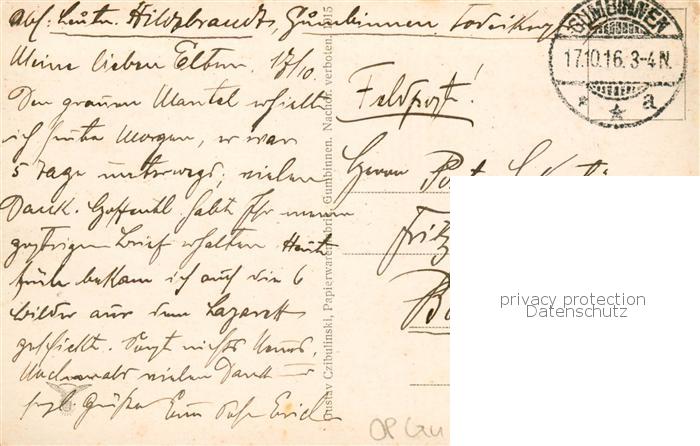 Abs: Leutn. Hildebrandt, Gumbinnen,
GUMBINNEN
17.10.16. 3-4 N.
* * a
Meine lieben Eltern. 17/10.
Den grauen Mantel erhielt
ich heute Morgen, er war
5 Tage unterwegs; vielen
Dank. Hoffentl. habt Ihr meinen
gestrigen Brief erhalten. Heute
früh bekam ich auch die 6
Bilder aus dem Lazarett
geschickt. Sonst nichts Neues.
Nochmals vielen Dank
herzl. Grüße Euer Sohn Erich
Feldpost!
Herrn
Fritz
Gustav Czibulinski, Papierwarenfabrik, Gumbinnen. Nachdr. verboten. 1915
privacy protection
Datenschutz